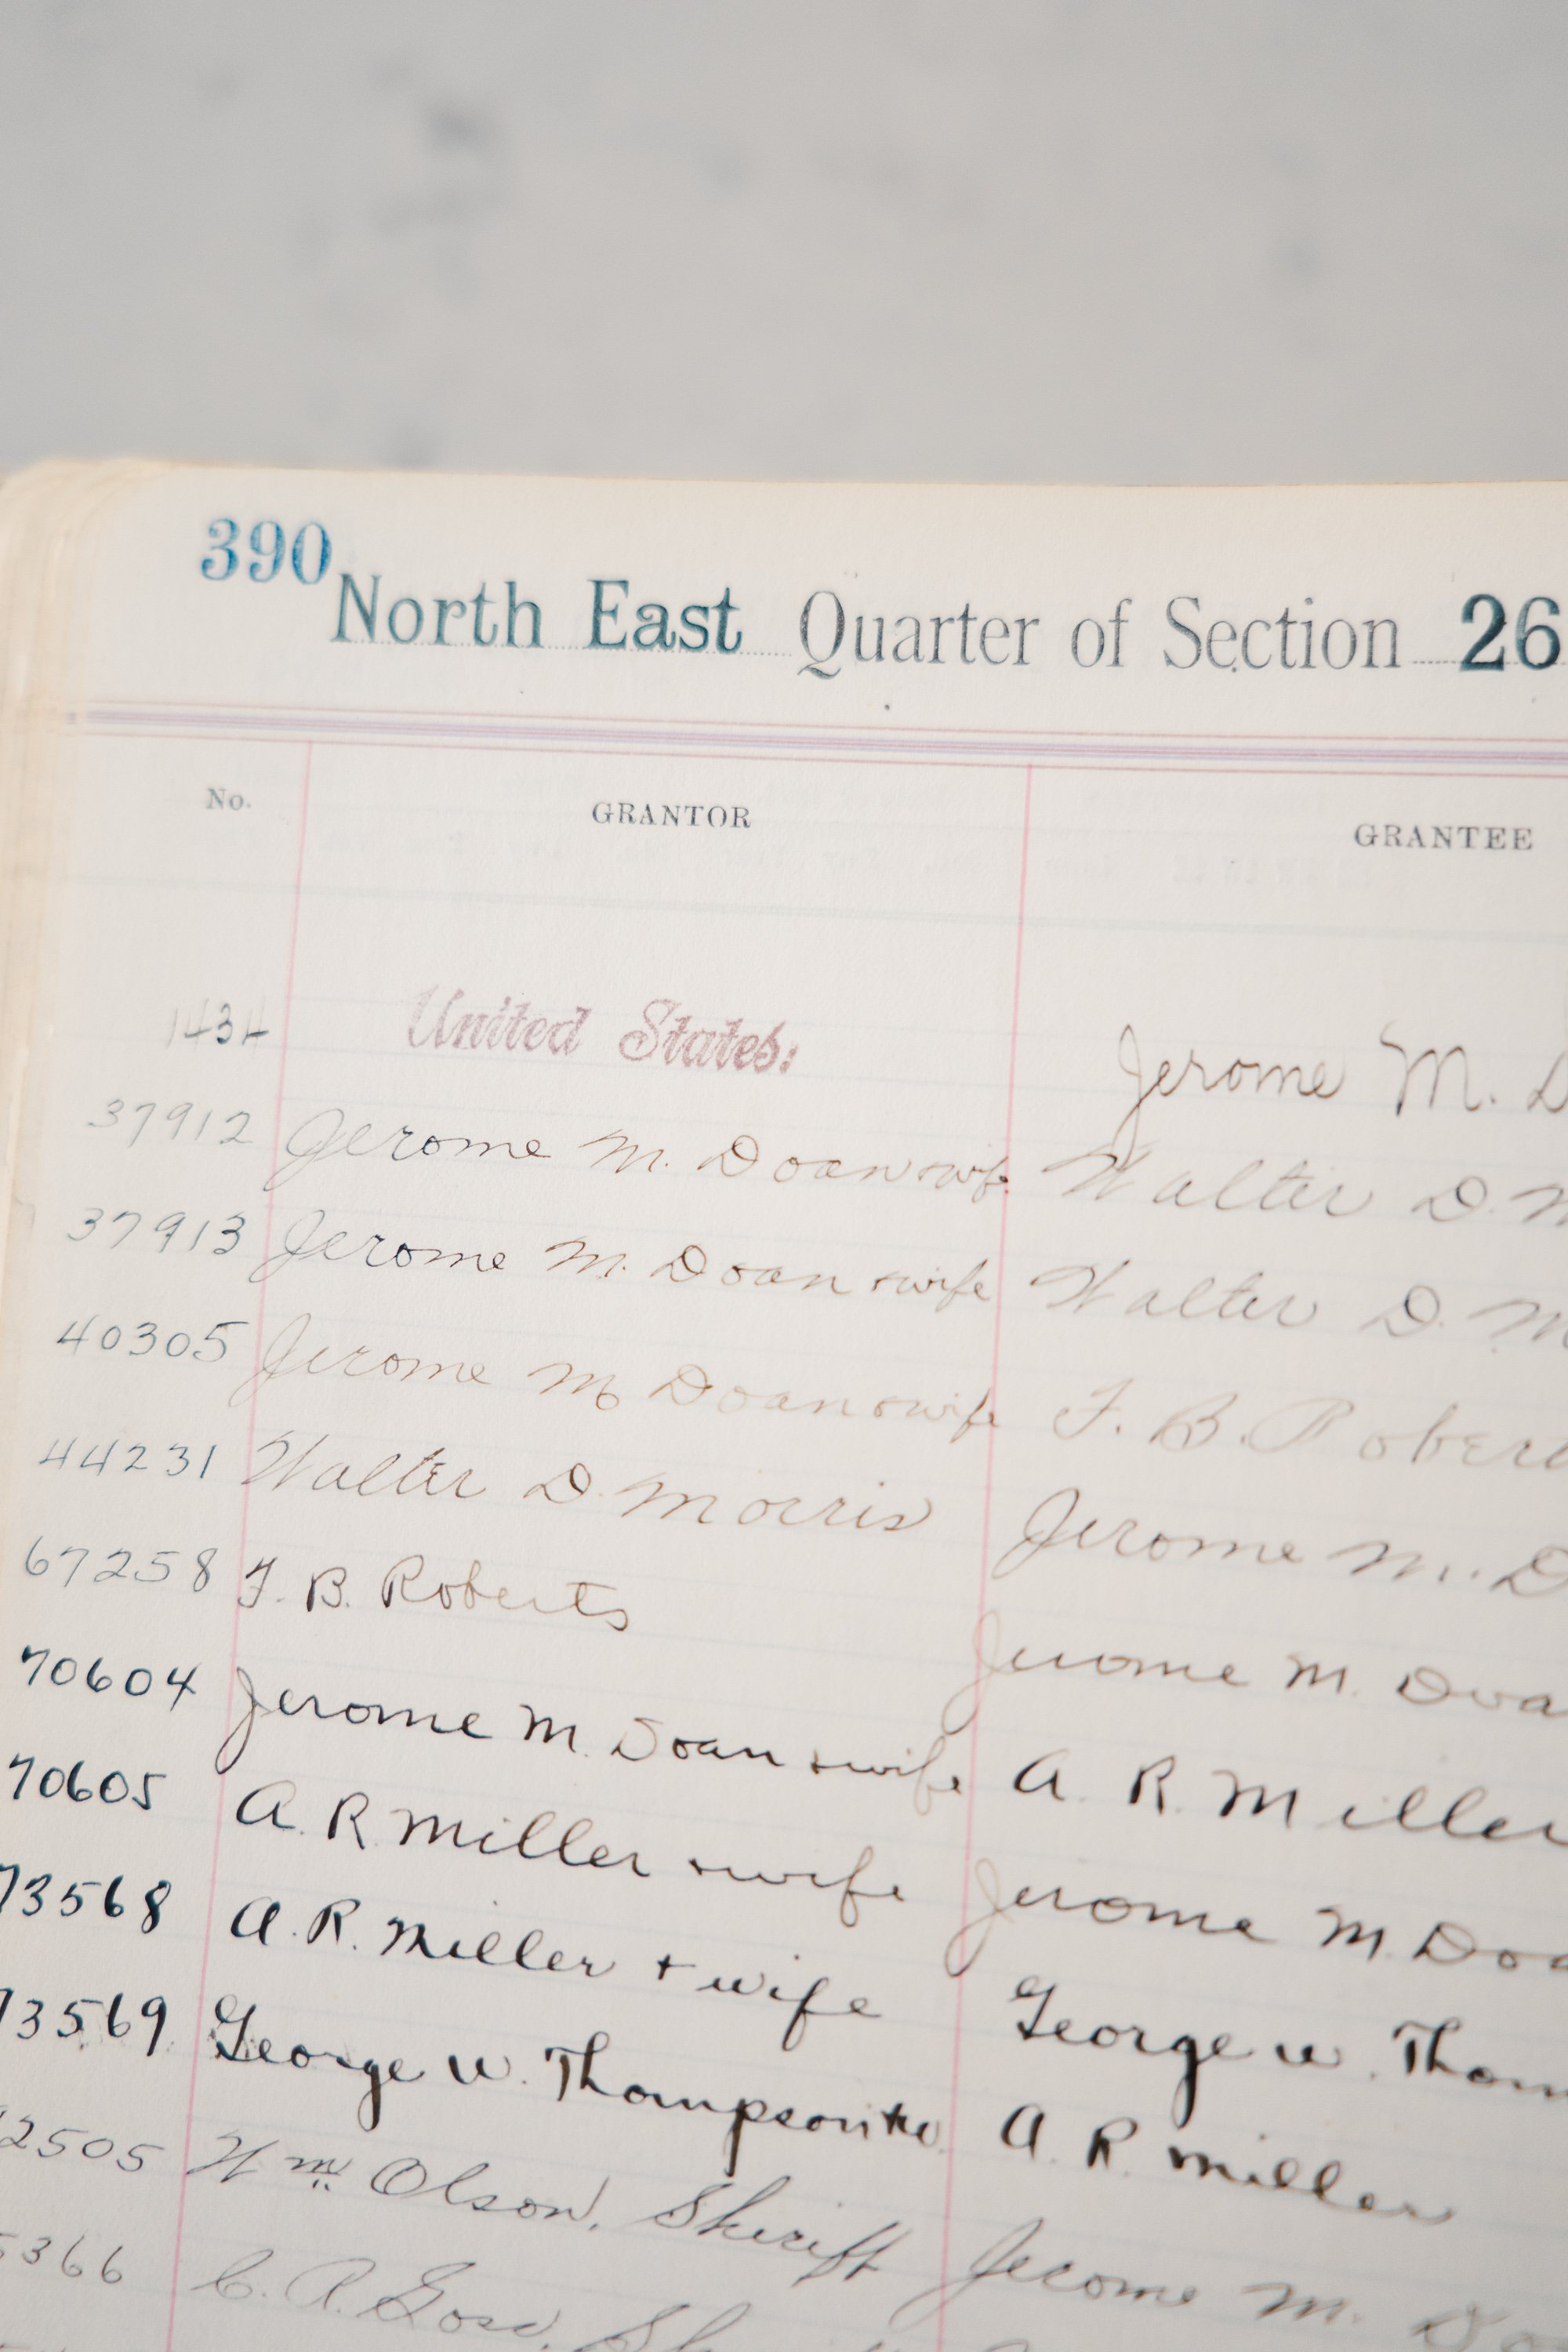 390
North East Quarter of Section 26
No. GRANTOR GRANTEE
1434 United States: Jerome M. D
37912 Jerome M. Doan & wife Walter D. M
37913 Jerome M. Doan & wife Walter D. M
40305 Jerome M Doan & wife F. B. Robert
44231 Walter D. Morris Jerome M. D
67258 F. B. Roberts Jerome M. Doa
70604 Jerome M. Doan & wife A. R. Miller
70605 A. R. Miller & wife Jerome M. Doa
73568 A. R. Miller + wife George W. Thom
73569 George W. Thompson A. R. Miller
2505 Wm Olson, Sheriff Jerome M. Do
5366 C. A. Gose, Sh